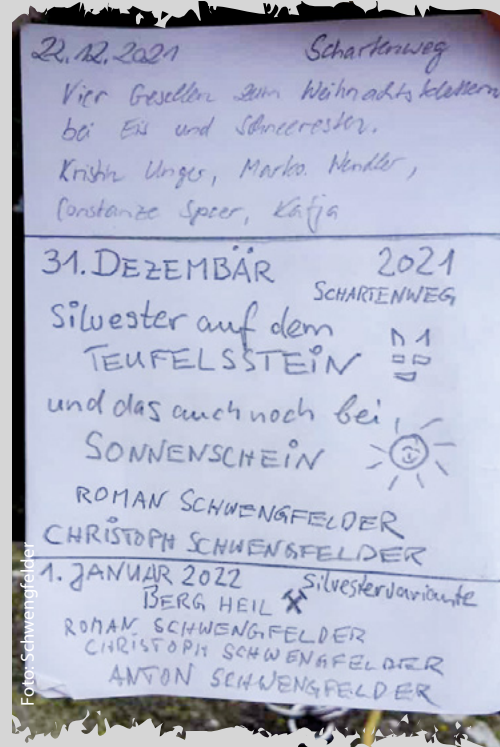 22.12.2021 Schartenweg
Vier Gesellen zum Weihnachtsklettern
bei Eis und Schneeresten.
Kristin Unger, Marko Wendler,
Constanze Speer, Katja
31. DEZEMBÄR 2021
SCHARTENWEG
Silvester auf dem
TEUFELSSTEIN
und das auch noch bei
SONNENSCHEIN
ROMAN SCHWENGFELDER
CHRISTOPH SCHWENGFELDER
1. JANUAR 2022 Silvestervariante
BERG HEIL
ROMAN SCHWENGFELDER
CHRISTOPH SCHWENGFELDER
ANTON SCHWENGFELDER
Foto: Schwengfelder